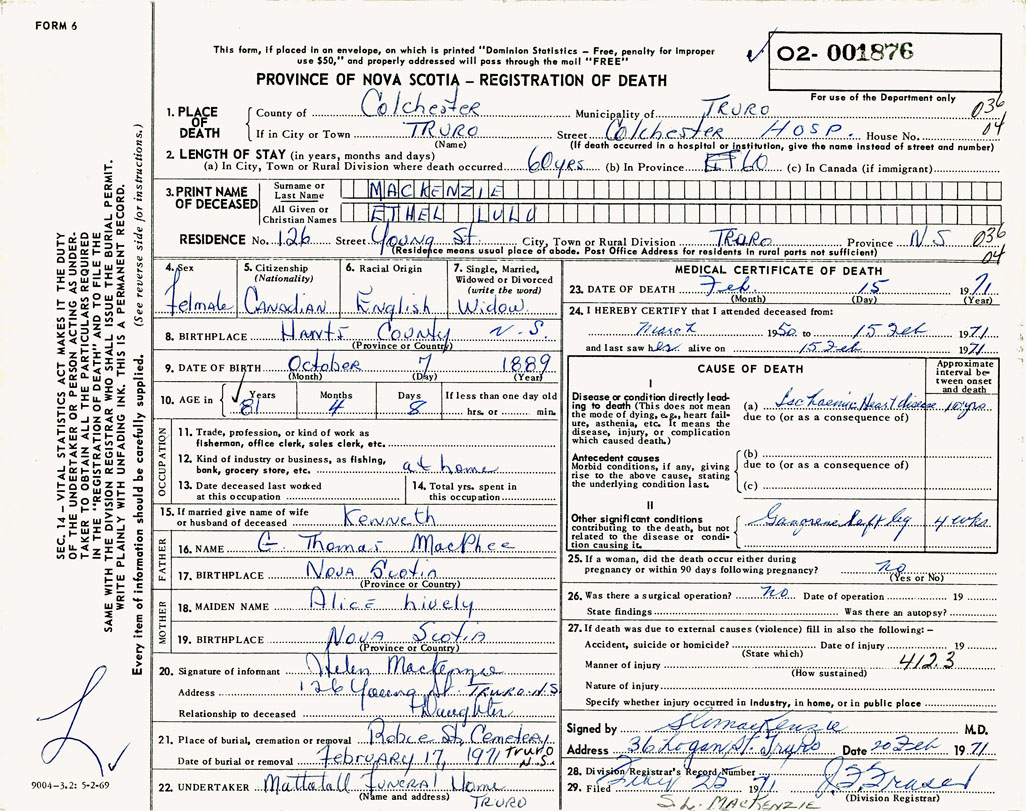 FORM 6
This form, if placed in an envelope, on which is printed "Dominion Statistics – Free, penalty for improper
use $50," and properly addressed will pass through the mail "FREE"
02- 001876
PROVINCE OF NOVA SCOTIA – REGISTRATION OF DEATH
For use of the Department only
1. PLACE OF DEATH
County of Colchester Municipality of TRURO 036
If in City or Town TRURO Street Colchester HOSP. House No. 04
(Name) (If death occurred in a hospital or institution, give the name instead of street and number)
2. LENGTH OF STAY (in years, months and days)
(a) In City, Town or Rural Division where death occurred 60 yrs (b) In Province 60 (c) In Canada (if immigrant)
3. PRINT NAME OF DECEASED
Surname or Last Name MACKENZIE
All Given or Christian Names ETHEL LULU
RESIDENCE No. 126 Street Young St City, Town or Rural Division TRURO Province N S 036
(Residence means usual place of abode. Post Office Address for residents in rural parts not sufficient) 04
SEC. 14 – VITAL STATISTICS ACT MAKES IT THE DUTY
OF THE UNDERTAKER OR PERSON ACTING AS UNDER-
TAKER TO OBTAIN ALL THE PARTICULARS REQUIRED
IN THE "REGISTRATION OF DEATH" AND TO FILE THE
SAME WITH THE DIVISION REGISTRAR WHO SHALL ISSUE THE BURIAL PERMIT.
WRITE PLAINLY WITH UNFADING INK. THIS IS A PERMANENT RECORD.
Every item of information should be carefully supplied. (See reverse side for instructions.)
4. Sex Felmale
5. Citizenship (Nationality) Canadian
6. Racial Origin English
7. Single, Married, Widowed or Divorced (write the word) Widow
8. BIRTHPLACE Hants County N.S.
(Province or Country)
9. DATE OF BIRTH October 7 1889
(Month) (Day) (Year)
10. AGE in Years 81 Months 4 Days 8 If less than one day old hrs. or min.
OCCUPATION
11. Trade, profession, or kind of work as fisherman, office clerk, sales clerk, etc.
12. Kind of industry or business, as fishing, bank, grocery store, etc. at home
13. Date deceased last worked at this occupation
14. Total yrs. spent in this occupation
15. If married give name of wife or husband of deceased Kenneth
FATHER
16. NAME G. Thomas MacPhee
17. BIRTHPLACE Nova Scotia
(Province or Country)
MOTHER
18. MAIDEN NAME Alice Lively
19. BIRTHPLACE Nova Scotia
(Province or Country)
20. Signature of informant Helen Mackenzie
Address 126 Young St. TRURO N.S
Relationship to deceased Daughter
21. Place of burial, cremation or removal Robie St. Cemetery
Date of burial or removal February 17, 1971 Truro N.S.
22. UNDERTAKER Mattatall Funeral Home
(Name and address) TRURO
MEDICAL CERTIFICATE OF DEATH
23. DATE OF DEATH Feb. 15 1971
(Month) (Day) (Year)
24. I HEREBY CERTIFY that I attended deceased from:
March 1950 to 15 Feb 1971
and last saw her alive on 15 Feb 1971
CAUSE OF DEATH
Approximate interval between onset and death
I
Disease or condition directly leading to death (This does not mean the mode of dying, e.g., heart failure, asthenia, etc. It means the disease, injury, or complication which caused death.)
(a) Ischaemic Heart disease 10 yrs
due to (or as a consequence of)
Antecedent causes
Morbid conditions, if any, giving rise to the above cause, stating the underlying condition last.
(b)
due to (or as a consequence of)
(c)
II
Other significant conditions contributing to the death, but not related to the disease or condition causing it.
Gangrene Left leg 4 wks
25. If a woman, did the death occur either during
pregnancy or within 90 days following pregnancy? no
(Yes or No)
26. Was there a surgical operation? no Date of operation 19
State findings Was there an autopsy?
27. If death was due to external causes (violence) fill in also the following:–
Accident, suicide or homicide? Date of injury 19
(State which)
Manner of injury 412.3
(How sustained)
Nature of injury
Specify whether injury occurred in industry, in home, or in public place
Signed by S L MacKenzie M.D.
Address 36 Logan St. Truro Date 20 Feb 1971
28. Division Registrar's Record Number
29. Filed 25 1971 Fraser
(Division Registrar)
S. L. MACKENZIE
9004-3.2: 5-2-69